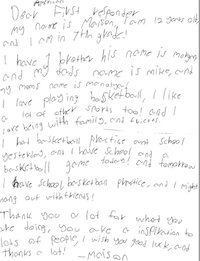 Dear First responder
my name is Maison, I am 12 years old,
and I am in 7th grade!
I have 1 brother his name is
and my dads name is mike, and
my moms name is
I love playing basketball, I like
a lot of other sports too! and I
love being with family, and
I had basketball practice and school
yesterday, and I have school and a
basketball game today! and tomorrow
I have school, basketball practice, and I might
hang out with friends!
Thank you a lot for what you
are doing, you are a inspiration to
lots of people, I wish you good luck, and
thanks a lot! - Maison